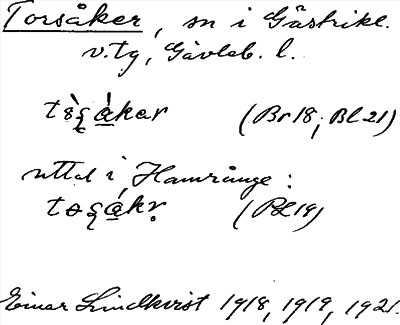 Torsåker, sn i Gästrikl.
v. tg, Gävleb. l.
(Br 18; Bl 21)
uttal i Hamrånge:
(Bl 19)
Einar Lindkvist 1918, 1919, 1921.